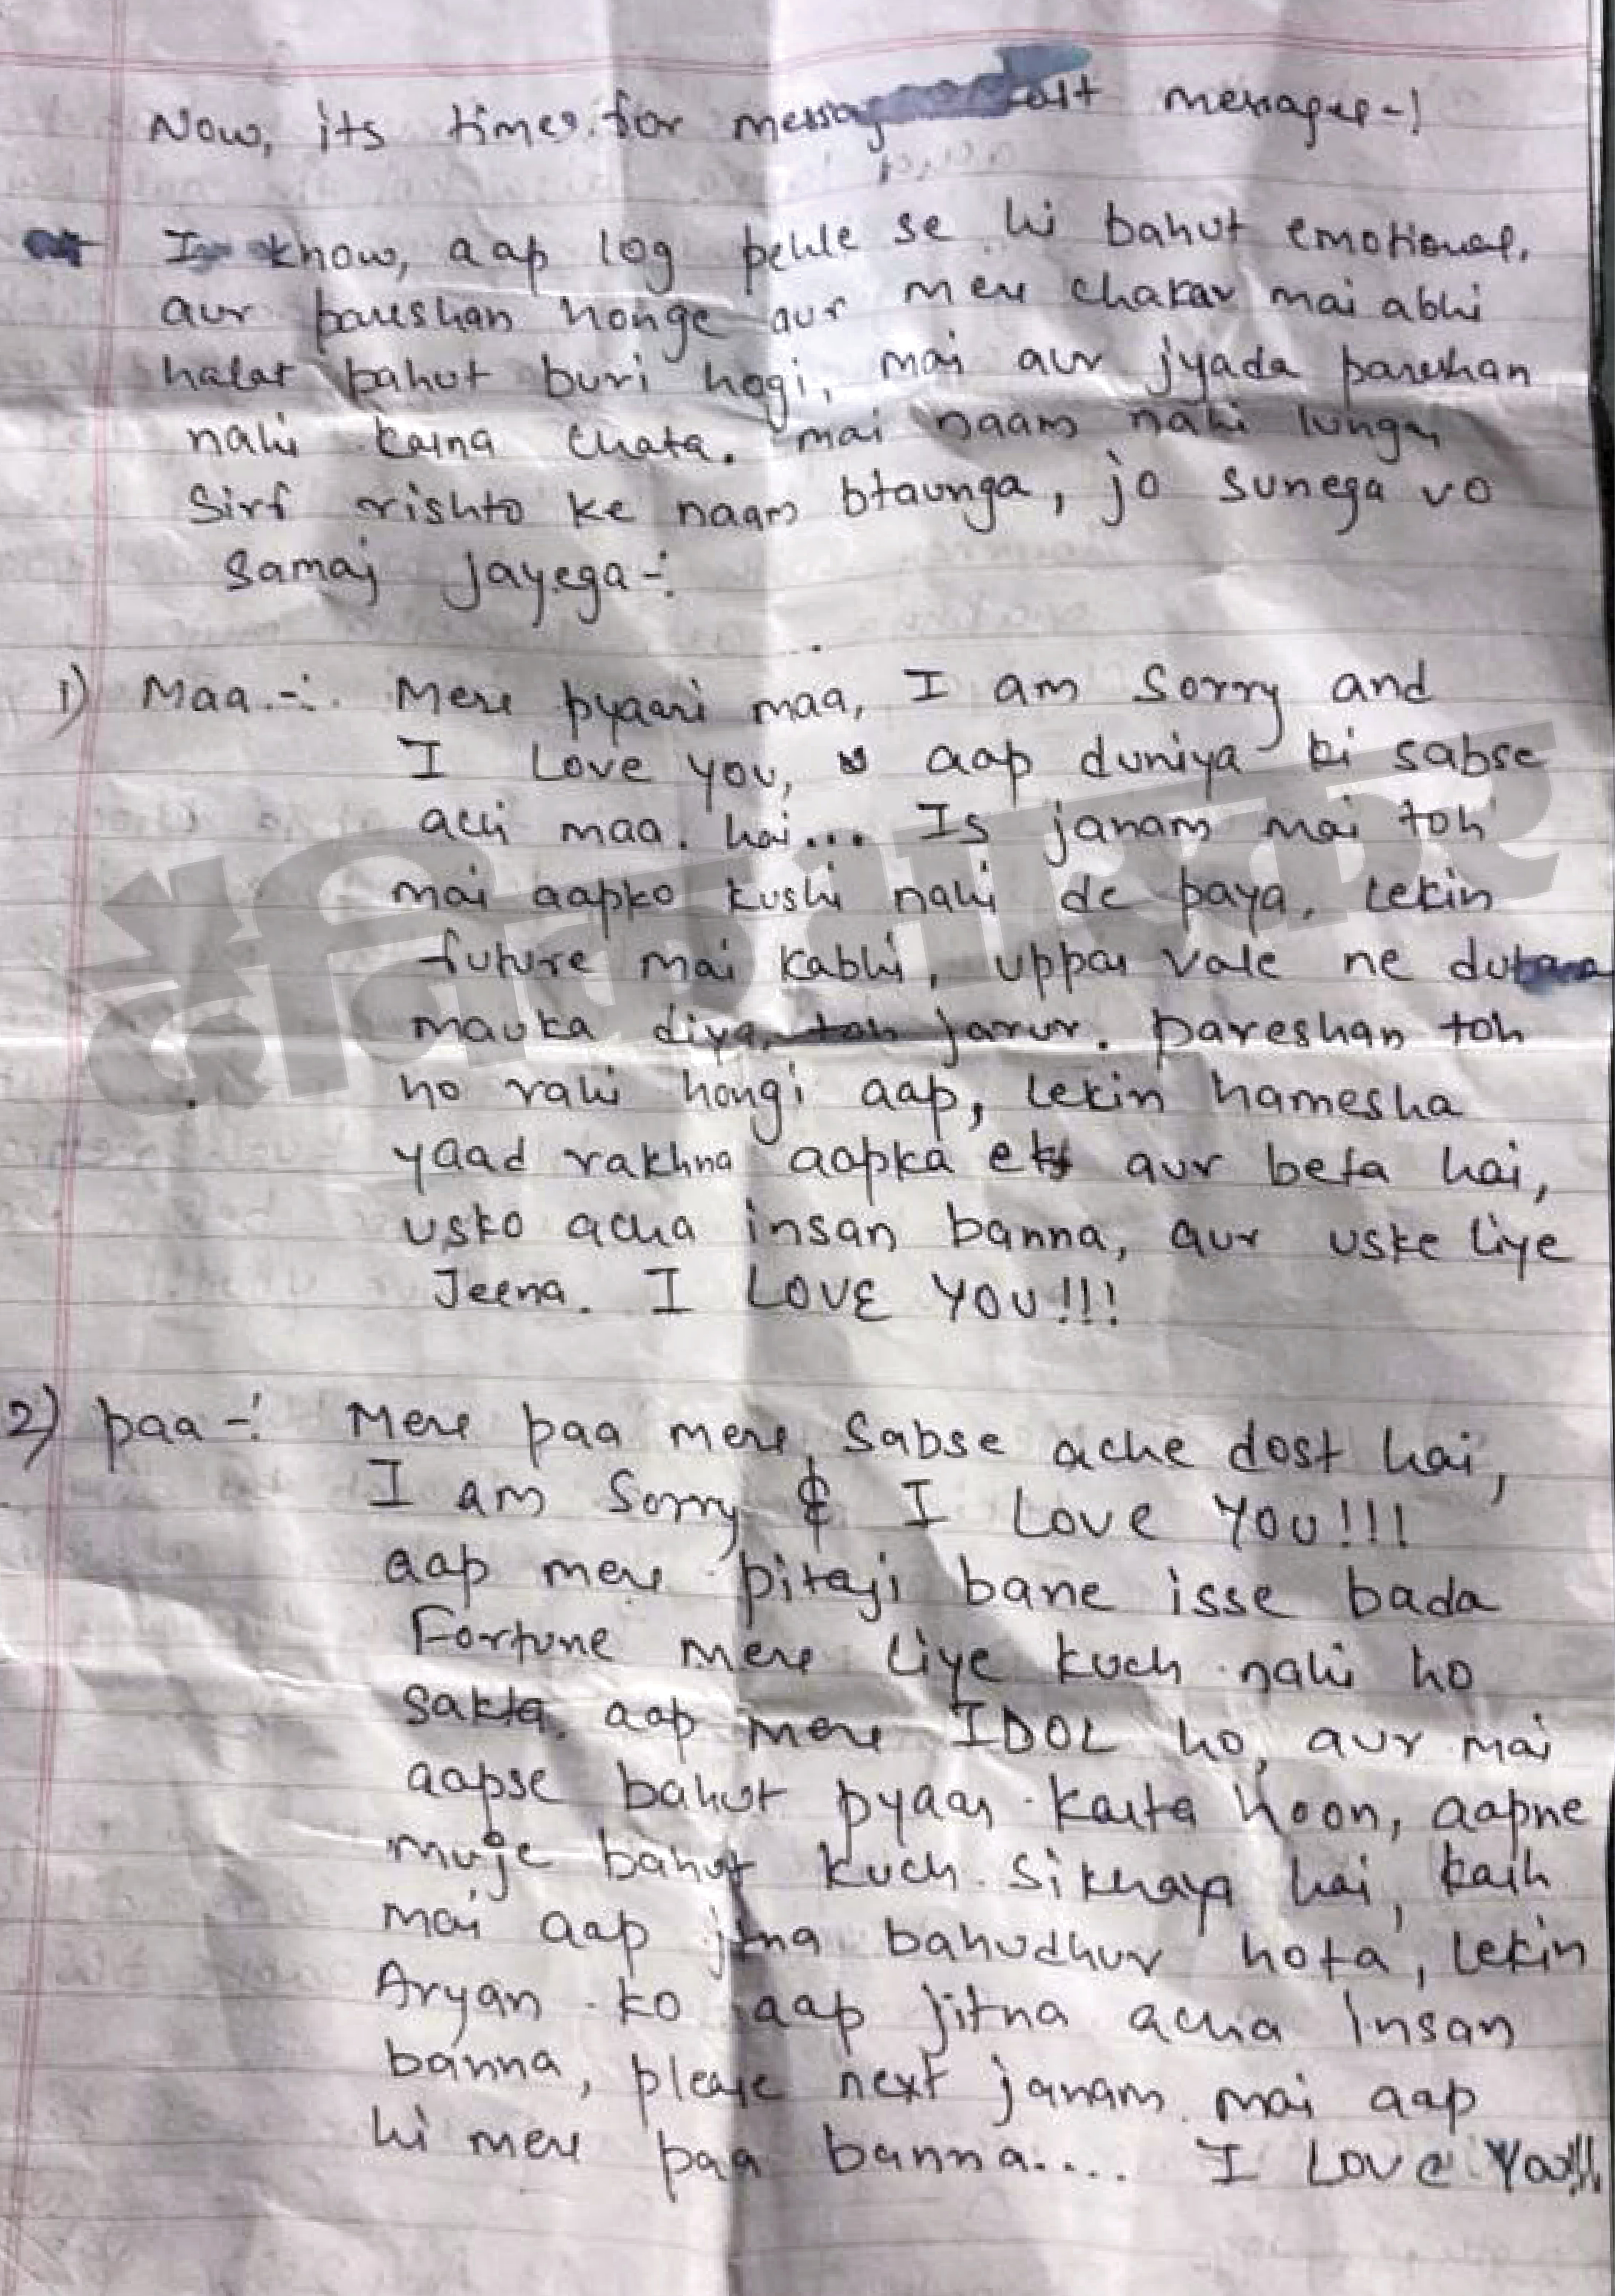 Now, its times for messag last messages-!
I know, aap log pehle se hi bahut emotional,
aur pareshan honge aur mere chakar mai abhi
halat bahut buri hogi, mai aur jyada pareshan
nahi karna chata. mai naam nahi lunga,
Sirf rishto ke naam btaunga, jo sunega vo
samaj jayega-:
1) Maa-: Mere pyaari maa, I am Sorry and
I Love you, aap duniya ki sabse
achi maa hai... Is janam mai toh
mai aapko kushi nahi de paya, lekin
future mai kabhi, uppar vale ne dubara
mauka diya, toh jarur. pareshan toh
ho rahi hongi aap, lekin hamesha
yaad rakhna aapka ek aur beta hai,
usko acha insan banna, aur uske liye
Jeena. I LOVE YOU!!!
2) paa-: Mere paa mere sabse ache dost hai,
I am Sorry & I Love YOU!!!
aap mere pitaji bane isse bada
Fortune mere liye kuch nahi ho
sakta. aap mere IDOL ho, aur mai
aapse bahut pyaar karta hoon, aapne
muje bahut kuch sikhaya hai, kash
mai aap jitna bahudhur hota, lekin
Aryan ko aap jitna acha Insan
banna, please next janam mai aap
hi mere paa banna.... I Love You!!!
दैनिक भास्कर